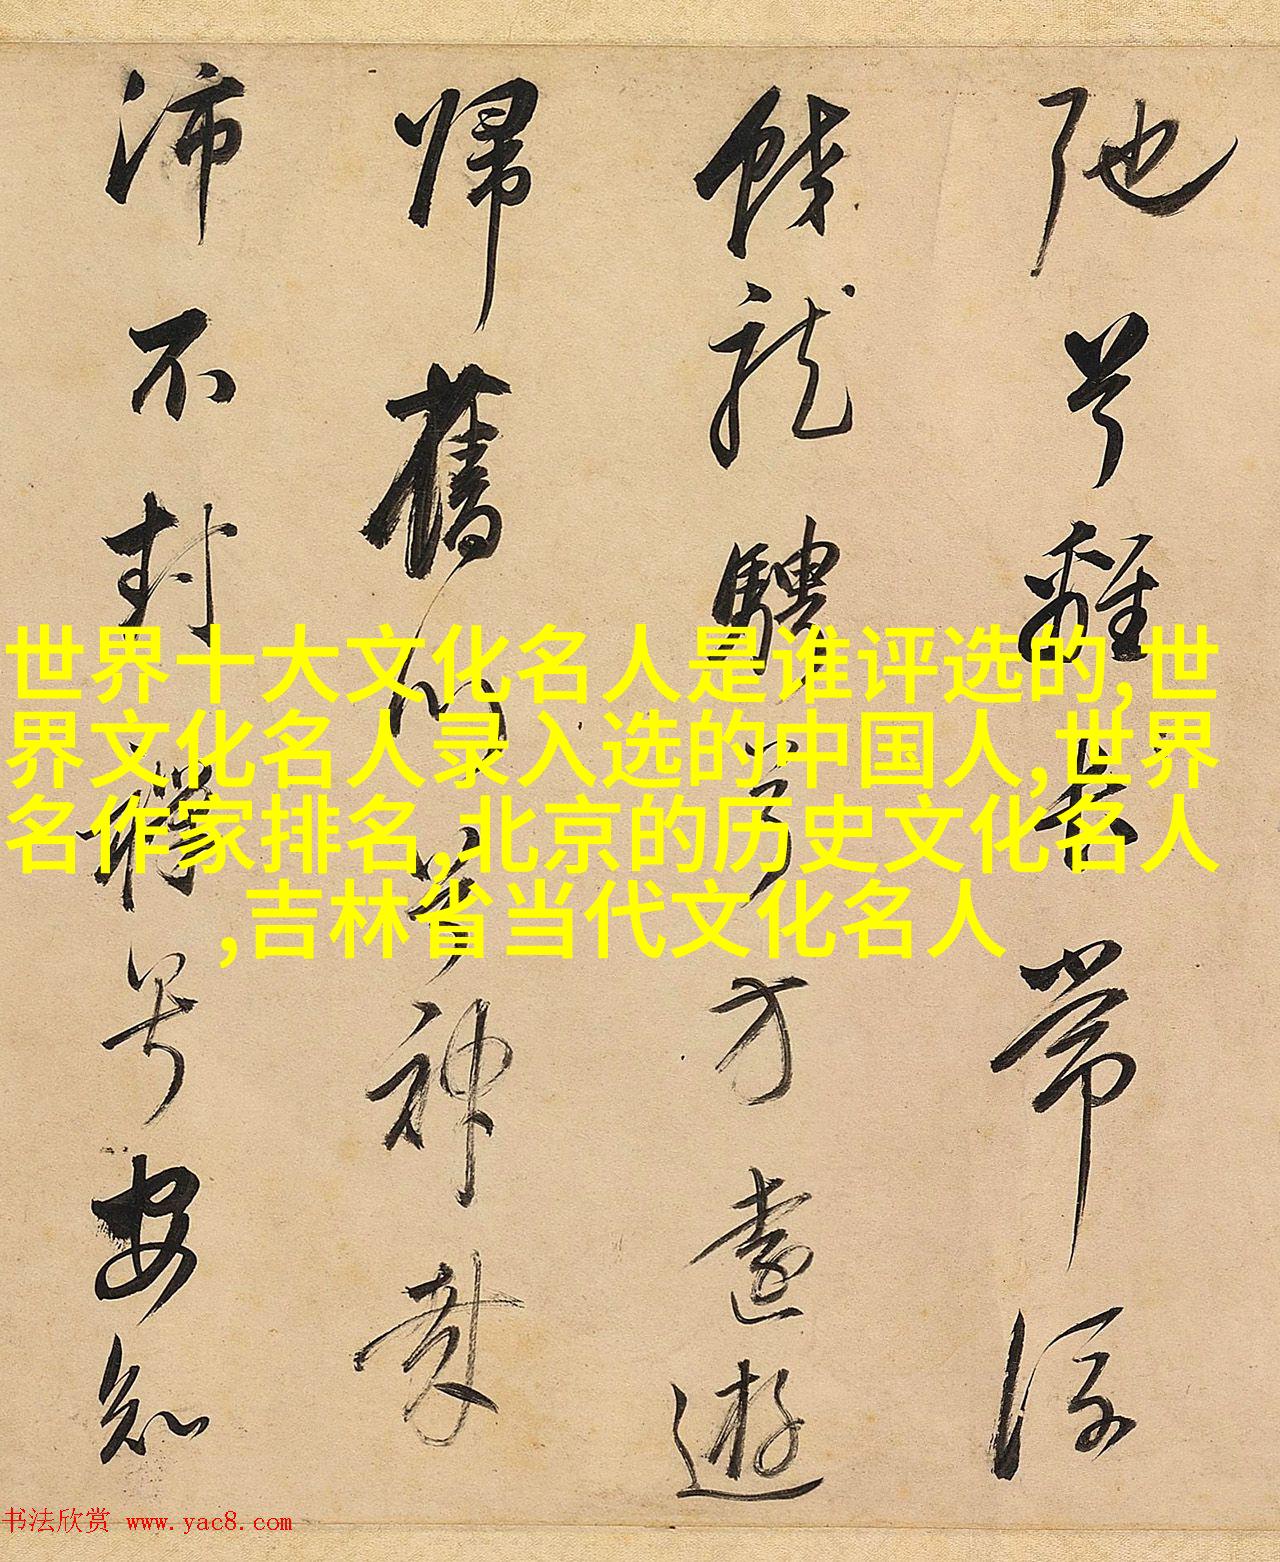 弛兮離常流
龍騁兮方遠遊
歸舊川兮神哉
沛不封禪兮安知
世界十大文化名人是谁评选的,世
界文化名人录入选的中国人,世界
名作家排名,北京的历史文化名人
,吉林省当代文化名人
书法欣赏 www.yac8.com